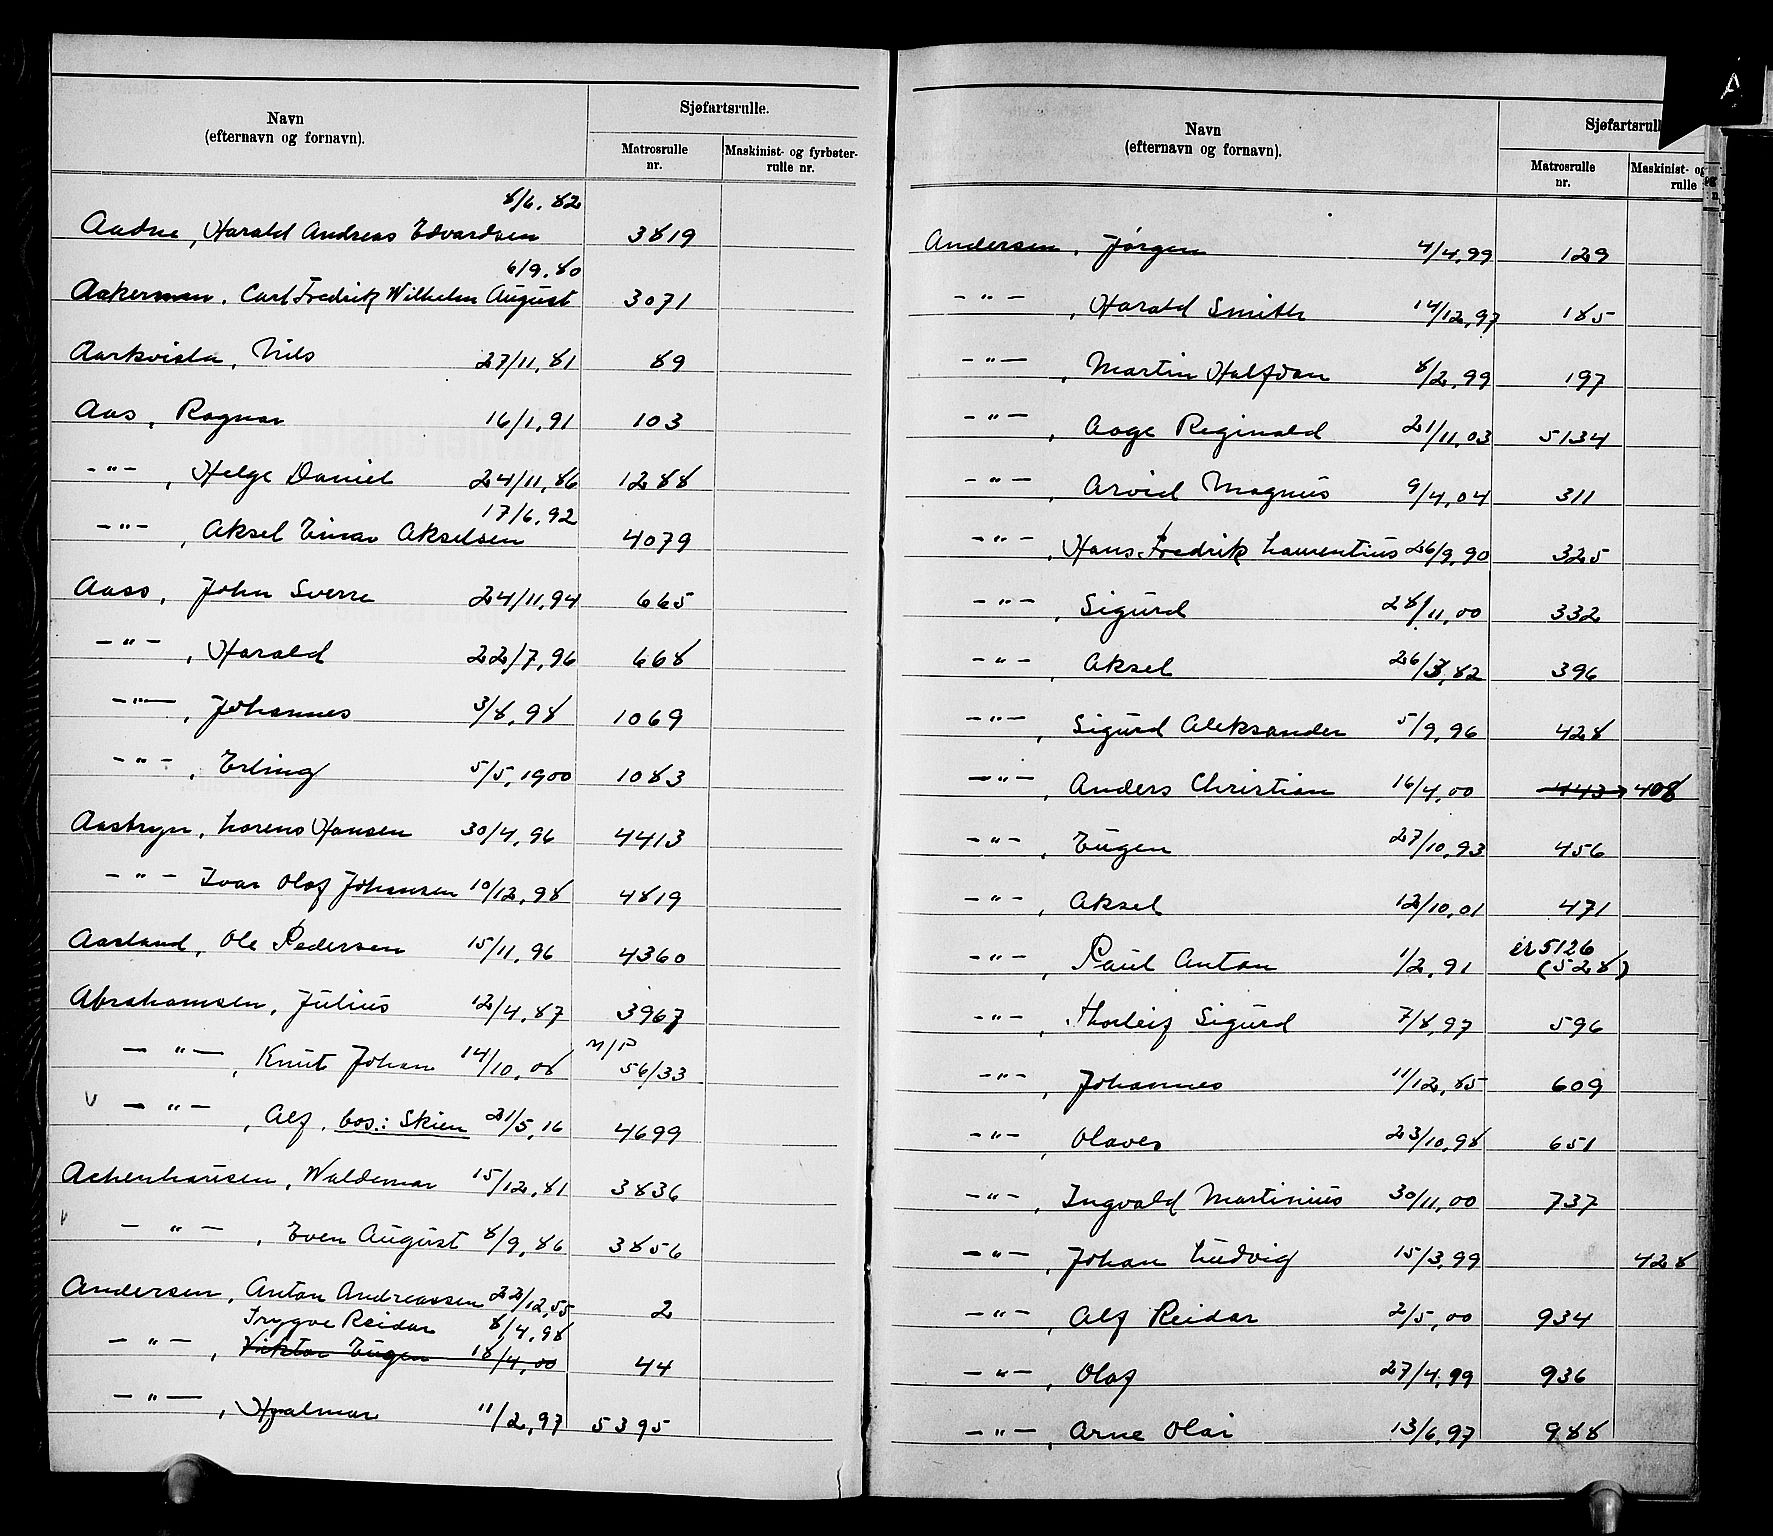 Navn
(efternavn og fornavn).
Sjøfartsrulle.
Matrosrulle
nr.
Maskinist- og fyrbøter-
rulle nr.
8/6.82
Aadne, Harald Andreas Edvardsen 3819
6/9.80
Aakerman, Carl Fredrik Wilhelm August 3071
Aarkvisla, Nils 27/11,81 89
Aas, Ragnar 16/1,91 103
-"- , Helge Daniel 24/11,86 1288
17/6,92
-"- , Aksel Einar Akselsen 4079
Aass, John Sverre 24/11,94 665
-"- , Harald 22/7,96 668
-"- , Johannes 3/8,98 1069
-"- , Erling 5/5,1900 1083
Aastryn, Lorens Hansen 30/4,96 4413
-"- Ivar Olaf Johansen 10/12,98 4819
Aasland, Ole Pedersen 15/11,96 4360
Abrahamsen, Julius 12/4,87 3967
-"- , Knut Johan 14/10,08 M/P 56/33
V -"- , Alf, bos.: Skien 21/5,16 4699
Achenhausen, Waldemar 15/12,81 3836
V -"- , Even August 8/9,86 3856
Andersen, Anton Andreassen 22/12,55 2
Trygve Reidar 8/4,98
-"- , Viktor Eugen 18/4,00 44
-"- , Hjalmar 11/2,97 5395
A
Navn
(efternavn og fornavn).
Sjøfartsrull
Matrosrulle
nr.
Maskinist- og
rulle
Andersen, Jørgen 4/4,99 129
-"- , Harald Smith 14/12,97 185
-"- , Martin Halfdan 8/2,99 197
-"- , Aage Reginald 21/11,03 5134
-"- , Arvid Magnus 9/4,04 311
-"- , Hans Fredrik Laurentius 26/9,90 325
-"- , Sigurd 28/11,00 332
-"- , Aksel 26/3,82 396
-"- , Sigurd Aleksander 5/9,96 428
-"- , Anders Christian 16/4,00 443 408
-"- , Eugen 27/10,93 456
-"- , Aksel 12/10,01 471
-"- , Paul Anton 1/2,91 er 5126
(528)
-"- , Thorleif Sigurd 7/8,97 596
-"- , Johannes 11/12,85 609
-"- , Olaves 23/10,98 651
-"- , Ingvald Martinius 30/11,00 737
-"- , Johan Ludvig 15/3,99 428
-"- , Alf Reidar 2/5,00 934
-"- , Olaf 27/4,99 936
-"- , Arne Olai 13/6,97 988